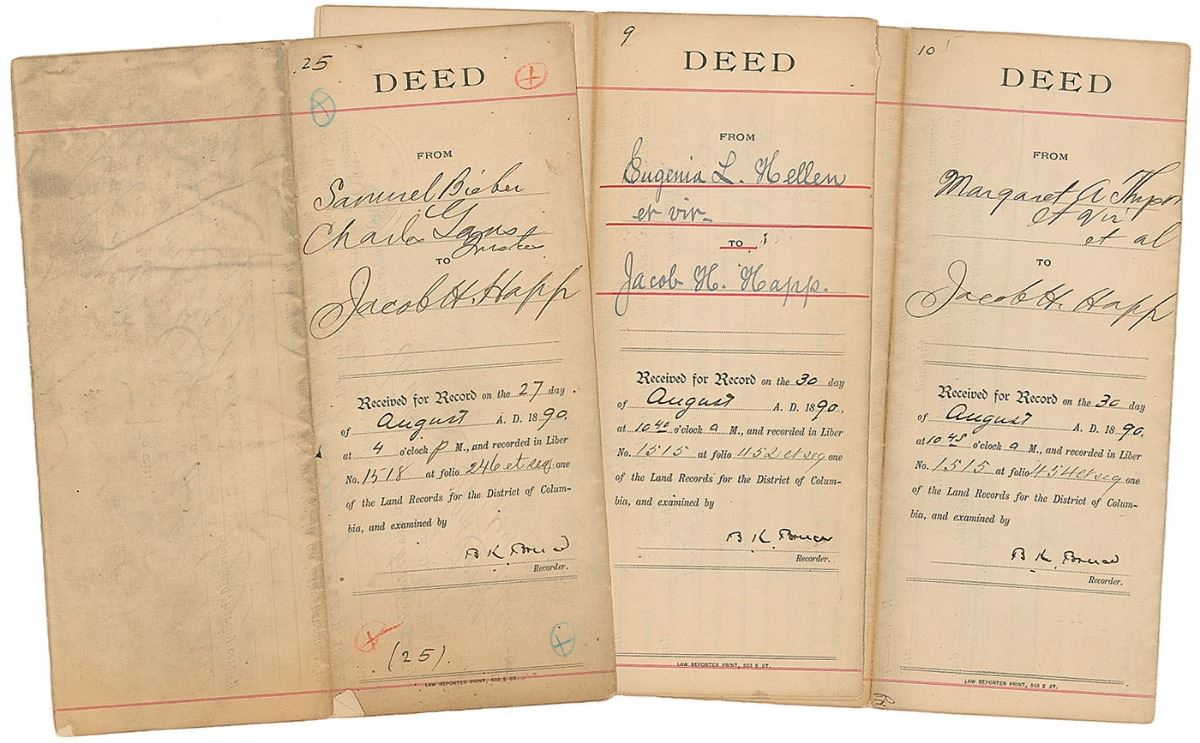 25
DEED
FROM
Samuel Bieber
Charles
Trustees
TO
Jacob H. Happ
Received for Record on the 27 day
of August A. D. 1890,
at 4 o'clock P M., and recorded in Liber
No. 1518 at folio 246 et seq one
of the Land Records for the District of Colum-
bia, and examined by
B K Bruce
Recorder.
(25)
LAW REPORTER PRINT, 503 E ST.
9
DEED
FROM
Eugenia L. Hellen
et vir
TO
Jacob H. Happ.
Received for Record on the 30 day
of August A. D. 1890,
at 10 40 o'clock a M., and recorded in Liber
No. 1515 at folio 452 et seq one
of the Land Records for the District of Colum-
bia, and examined by
B K. Bruce
Recorder.
LAW REPORTER PRINT, 503 E ST.
10
DEED
FROM
Margaret A
et vir
et al
TO
Jacob H. Happ
Received for Record on the 30 day
of August A. D. 1890,
at 10 45 o'clock a M., and recorded in Liber
No. 1515 at folio 454 et seq one
of the Land Records for the District of Colum-
bia, and examined by
B K. Bruce
Recorder.
LAW REPORTER PRINT, 503 E ST.